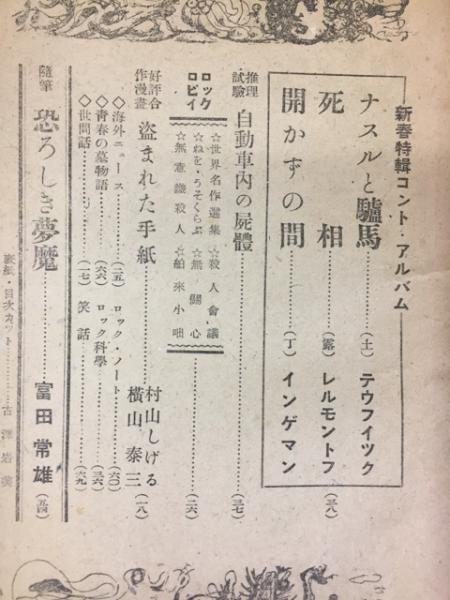 新春特輯コント・アルバム
ナスルと驢馬………(土) テウフイツク
死相………(露) レルモントフ (三八)
開かずの間………(丁) インゲマン
推理試驗 自動車內の屍體………(三七)
ロックロビイ
☆世界名作選集 ☆殺人會議
☆ねを・ろそくらぶ ☆無關心
☆無意識殺人 ☆舶來小咄
………(二六)
好評合作漫畫 盜まれた手紙………村山しげる 橫山泰三 (一八)
◇海外ニュース………(二五) ロック・ノート………(六〇)
◇靑春の墓物語………(六六) ロック科學………(三六)
◇世間話………(一七) 笑話………(六九)
隨筆 恐ろしき夢魔………富田常雄 (五四)
表紙・目次カット………古澤岩美